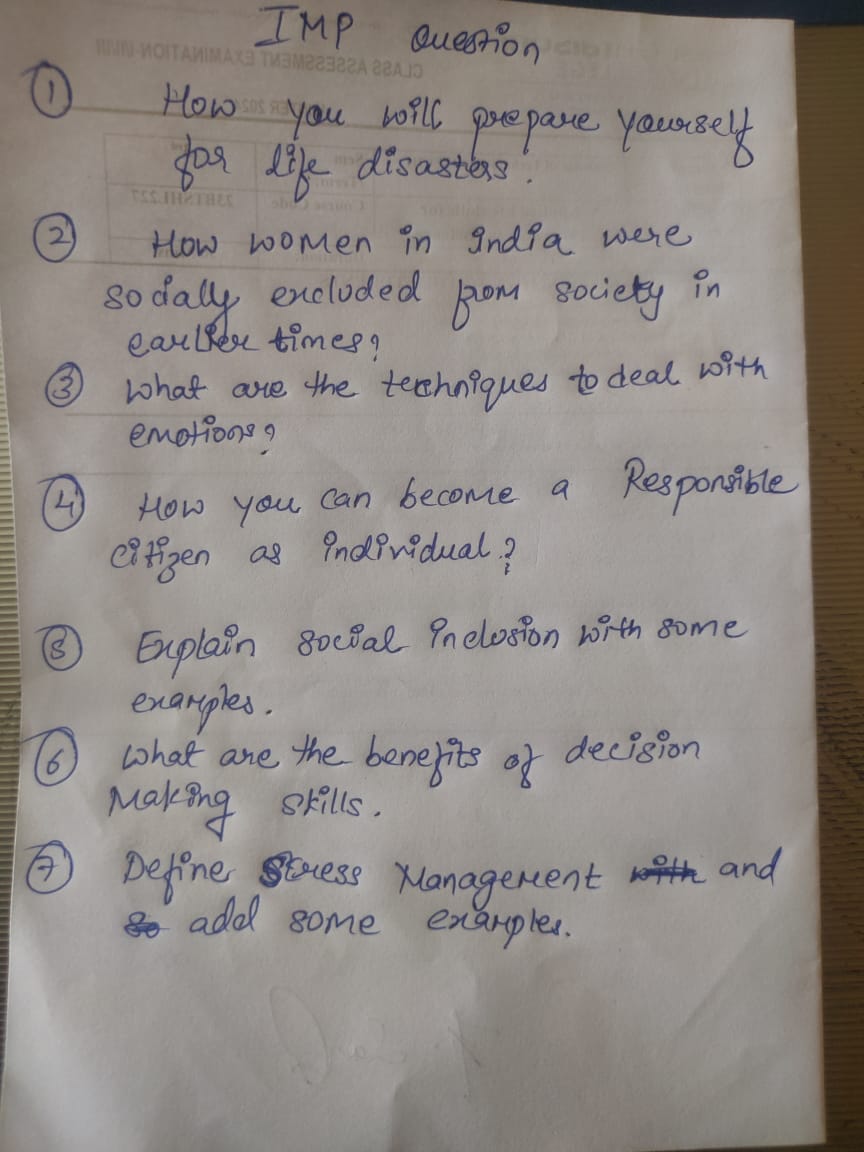 IMP Question
① How you will prepare yourself
for life disasters.
② How women in India were
socially excluded from society in
earlier times?
③ What are the techniques to deal with
emotions?
④ How you can become a Responsible
citizen as individual?
⑤ Explain social inclusion with some
examples.
⑥ What are the benefits of decision
Making skills.
⑦ Define Stress Management with and
so add some examples.
CLASS ASSESSMENT EXAMINATION